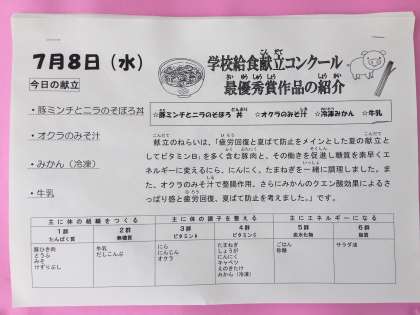 7月8日(水)
学校給食献立コンクール
最優秀賞作品の紹介
今日の献立
・豚ミンチとニラのそぼろ丼
・オクラのみそ汁
・みかん(冷凍)
・牛乳
☆豚ミンチとニラのそぼろ丼 ☆オクラのみそ汁 ☆冷凍みかん ☆牛乳
献立のねらいは、「疲労回復と夏ばて防止をメインとした夏の献立と
してビタミンB₁を多く含む豚肉と、その働きを促進し糖質を素早くエ
ネルギーに変えるにら、にんにく、たまねぎを一緒に調理しました。ま
た、オクラのみそ汁で整腸作用、さらにみかんのクエン酸効果によるさ
っぱり感と疲労回復、夏ばて防止を考えました。」です。
主に体の組織をつくる 主に体の調子を整える 主にエネルギーになる
1群 2群 3群 4群 5群 6群
たんぱく質 無機質 ビタミンA ビタミンC 炭水化物 脂質
豚ひき肉 牛乳 にら たまねぎ ごはん サラダ油
とうふ だしこんぶ にんじん しょうが 砂糖
みそ オクラ にんにく
けずりぶし キャベツ
えのきたけ
みかん(冷凍)